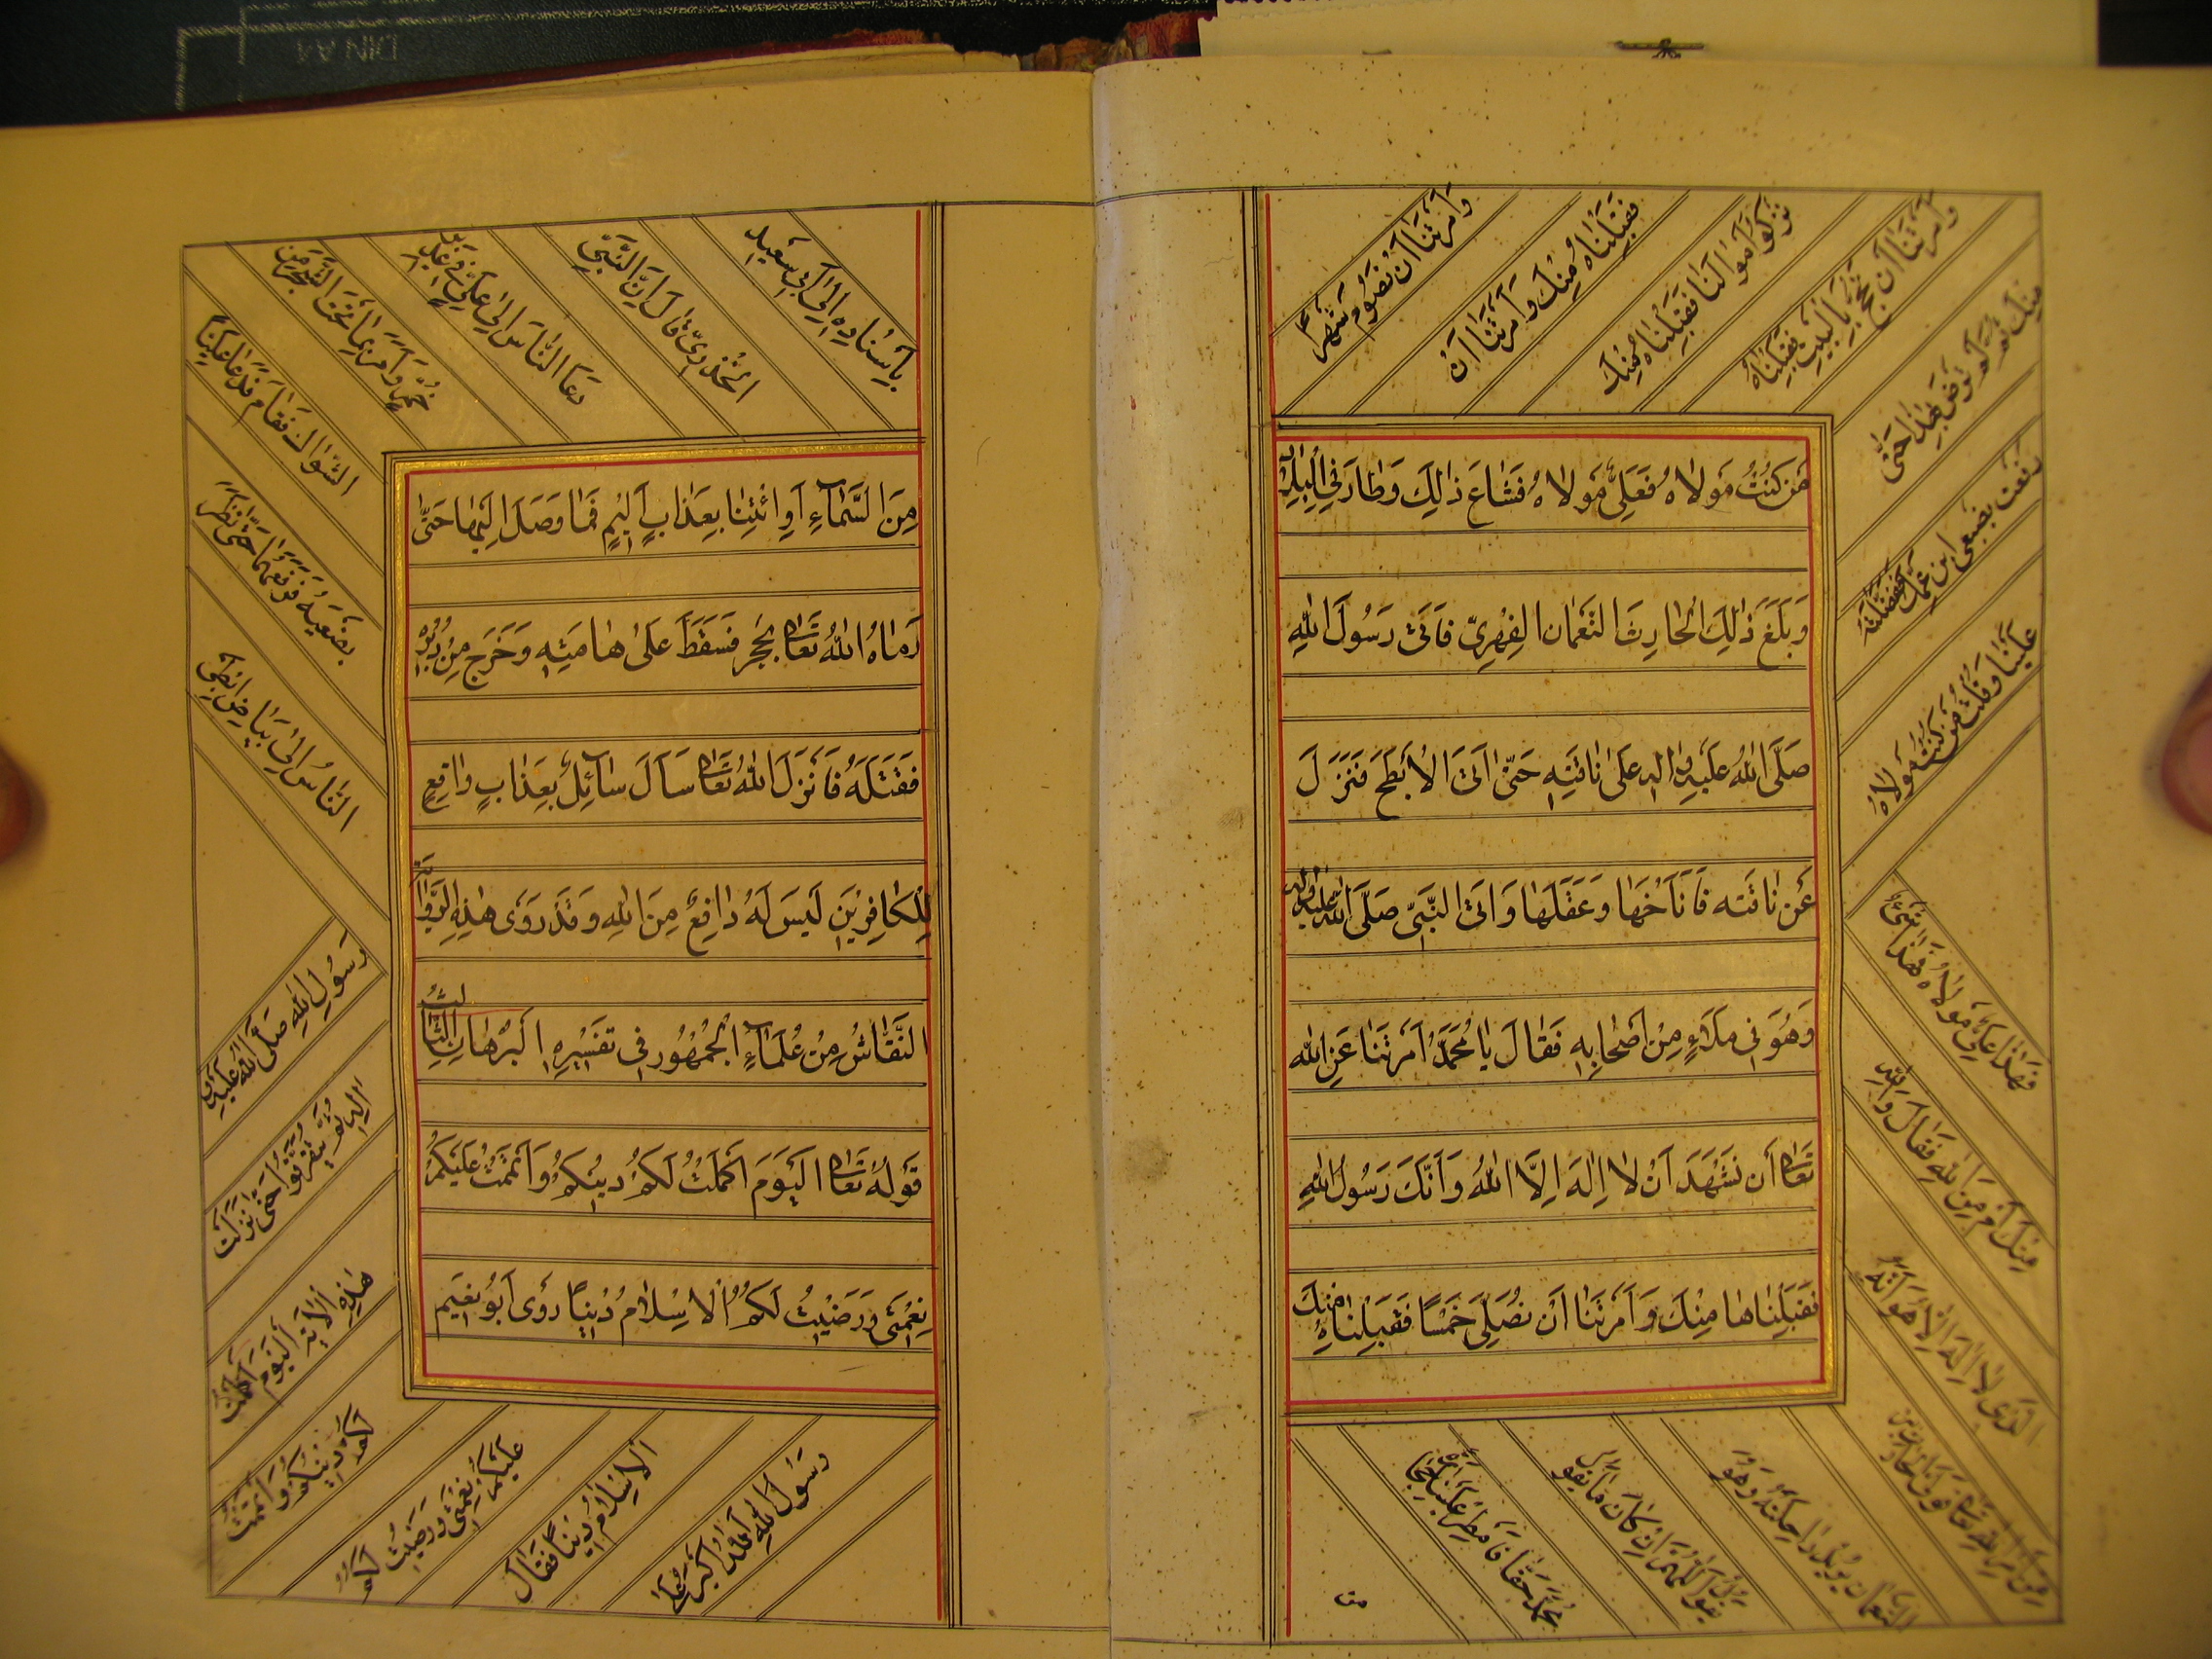 مَن كُنتُ مَولاهُ فَعَلِىٌّ مَولاهُ فَشاعَ ذٰلِكَ وَطارَ فِي البِلادِ
وَبَلَغَ ذٰلِكَ الحارِثَ النَّعمان الفِهرِىّ فَاَتىٰ رَسُولَ اللهِ
صَلَّى اللهُ عَلَيهِ وَالِهِ عَلىٰ ناقَتِهِ حَتّىٰ اَتىَ الاَبطَحَ فَنَزَلَ
عَن ناقَتِه فَاَناخَها وَعَقَلَها وَاَتىَ النَّبِىَّ صَلَّى اللهُ عَلَيهِ وَالِهِ
وَهُوَ فِى مَلاءٍ مِن اَصحابِهِ فَقالَ يا مُحَمَّدُ اَمَرتَنا عَنِ اللهِ
تَعالىٰ اَن نَشهَدَ اَن لا اِلٰهَ اِلَّا اللهُ وَاَنَّكَ رَسُولُ اللهِ
فَقَبِلناها مِنكَ وَاَمَرتَنا اَن نُصَلِّىَ خَمسًا فَقَبِلناهُ مِنكَ
وَاَمَرتَنا اَن نَصُومَ شَهرًا
فَقَبِلناهُ مِنكَ وَاَمَرتَنا اَن
نُزَكّوا اَموالَنا فَقَبِلناهُ مِنكَ
وَاَمَرتَنا اَن نَحُجَّ بِالبَيتِ فَقَبِلناهُ
مِنكَ ثُمَّ لَم تَرضَ بِهٰذا حَتّىٰ
رَفَعتَ بِضَبعَىِ ابنِ عَمِّكَ فَفَضَّلتَهُ
عَلَينا وَقُلتَ مَن كُنتُ مَولاهُ
فَهٰذا عَلِىٌّ مَولاهُ فَهٰذا شَىءٌ
مِنكَ اَم مِنَ اللهِ فَقالَ وَاللهِ
الَّذى لا اِلٰهَ اِلّا هُوَ اَنَّهُ
مِن اَمرِ اللهِ تَعالىٰ فَوَلّىٰ حارِثُ بنُ
النُّعمان يُريدُ راحِلَتَهُ وَهُوَ
يَقُولُ اللّٰهُمَّ اِن كانَ ما يَقُولُ
مُحَمَّدٌ حَقًّا فَاَمطِر عَلَينا حِجارَةً
مِن
مِنَ السَّماءِ اَوِ ائتِنا بِعَذابٍ اَليمٍ فَما وَصَلَ اِلَيها حَتّىٰ
رَماهُ اللهُ تَعالىٰ بِحَجَرٍ فَسَقَطَ عَلىٰ هامَتِهِ وَخَرَجَ مِن دُبُرِهِ
فَقَتَلَهُ فَاَنزَلَ اللهُ تَعالىٰ سَاَلَ سائِلٌ بِعَذابٍ واقِعٍ
لِلكافِرينَ لَيسَ لَهُ دافِعٌ مِنَ اللهِ وَقَد رَوىٰ هٰذِهِ الرِّوايَةَ
النَّقّاشُ مِن عُلَماءِ الجُمهُورِ فى تَفسيرِهِ البُرهان الثّالِثُ
قَولُهُ تَعالىٰ اَليَومَ اَكمَلتُ لَكُم دينَكُم وَاَتمَمتُ عَلَيكُم
نِعمَتى وَرَضيتُ لَكُمُ الاِسلامَ دينًا رَوىٰ اَبُو نُعَيم
بِاِسنادِهِ اِلىٰ اَبى سَعيدٍ
الخُدرِىِّ قالَ اِنَّ النَّبِىَّ
دَعَا النّاسَ اِلىٰ عَلِىٍّ فى غَديرِ
خُمٍّ وَاَمَرَ بِما تَحتَ الشَّجَرِ مِنَ
الشَّوكِ فَقامَ فَدَعا عَلِيًّا
بِضَبعَيهِ فَرَفَعَهُما حَتّىٰ نَظَرَ
النّاسُ اِلىٰ بَياضِ اِبطَى
رَسُولِ اللهِ صَلَّى اللهُ عَلَيهِ وَ
الِهِ ثُمَّ لَم يَتَفَرَّقُوا حَتّىٰ نَزَلَت
هٰذِهِ الايَةُ اَليَومَ اَكمَلتُ
لَكُم دينَكُم وَاَتمَمتُ
عَلَيكُم نِعمَتى وَرَضيتُ لَكُمُ
الاِسلامَ دينًا فَقالَ
رَسُولُ اللهِ اَللهُ اَكبَرُ عَلىٰ